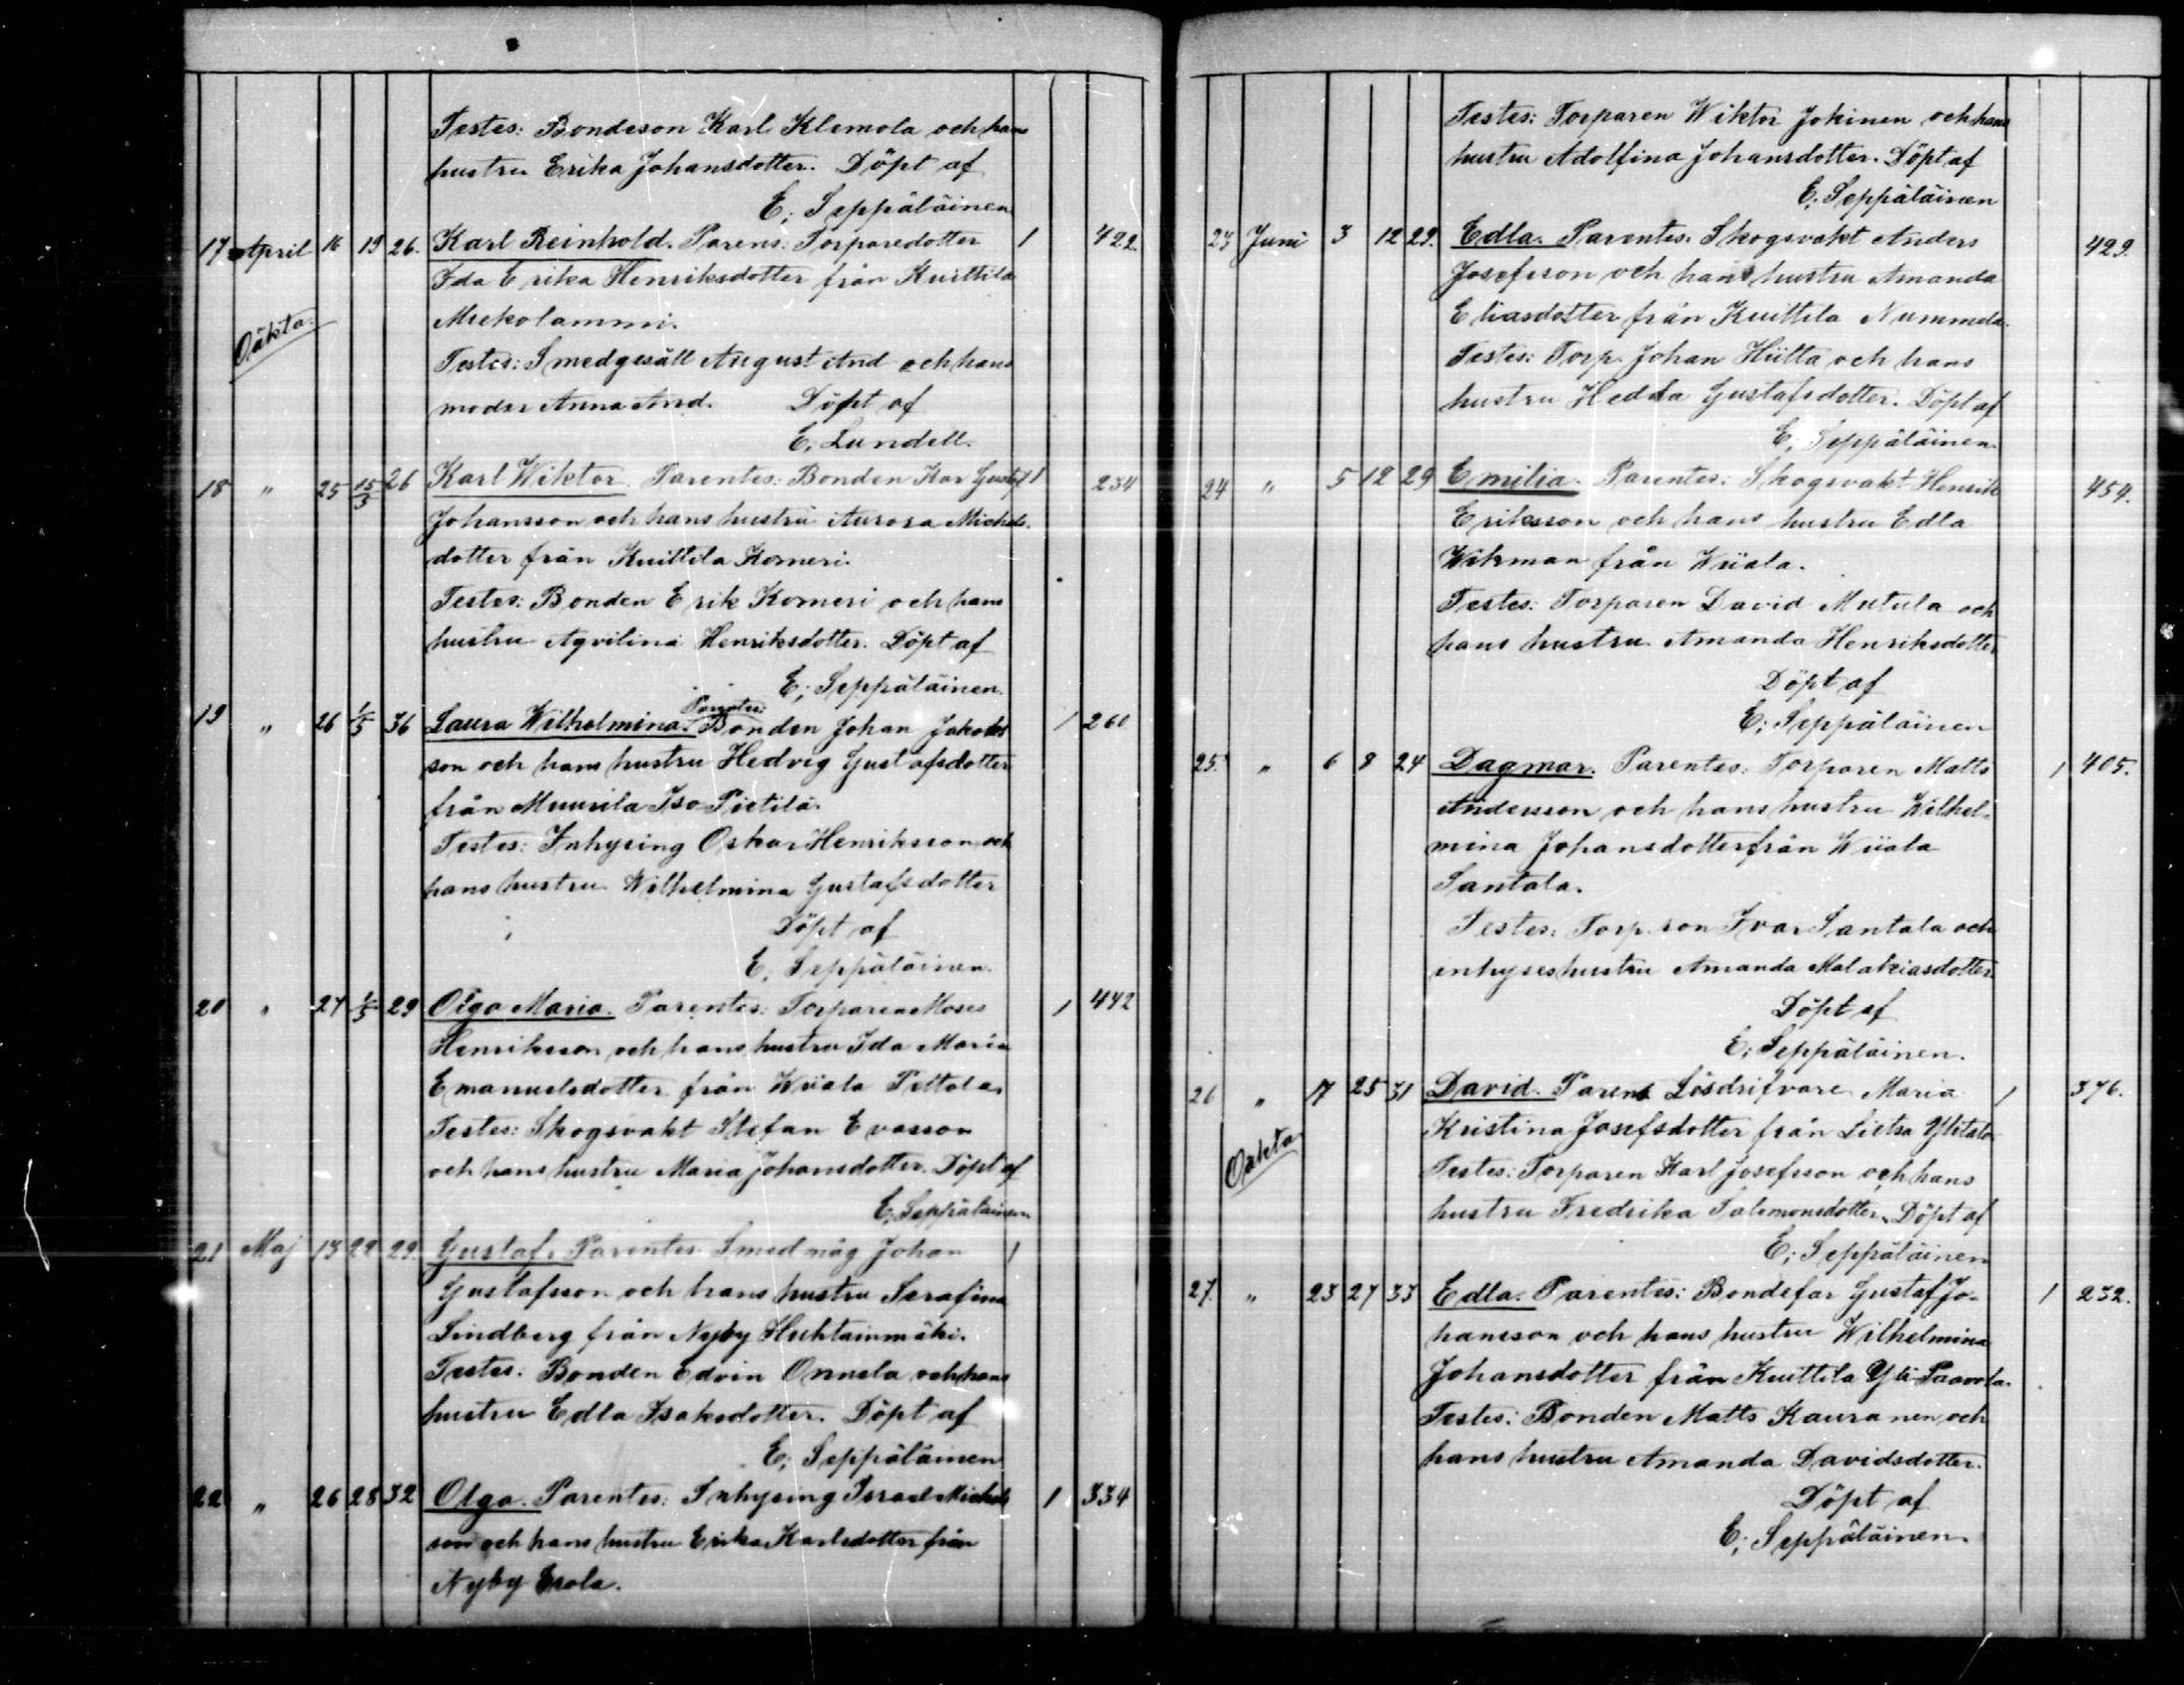 Testes: Bondeson Karl Klemola och hans
hustru Erika Johansdotter. Döpt af
E; Seppäläinen
17 April 16 19 26. Karl Reinhold. Parens: Torparedotter 1 422.
Ida Erika Henriksdotter från Kuittila
Oäkta.
Testes: Smedgesäll August And och hans
moder Anna And. Döpt af
E. Lundell.
18 " 25 15/5 26 Karl Wiktor. Parentes: Bonden Kar Gustaf 1 234
Johansson och hans hustru Aurora Michels-
dotter från Kuittila Korneri.
Testes: Bonden Erik Korneri och hans
hustru Aqvilina Henriksdotter. Döpt af
E; Seppäläinen.
19 " 26 1/5 36 Laura Wilhelmina. Parentes: Bonden Johan Jakobs 1 260
son och hans hustru Hedvig Gustafsdotter
från Muurila Iso Pietilä.
Testes: Inhysing Oskar Henriksson och
hans hustru Wilhelmina Gustafsdotter
Döpt af
E; Seppäläinen.
20 " 27 1/5 29 Olga Maria. Parentes: Torparen Moses 1 442
Henriksson och hans hustru Ida Maria
Emanuelsdotter från Wiiala
Testes: Skogsvakt Stefan Evasson
och hans hustru Maria Johansdotter. Döpt af
E; Seppäläinen
21 Maj 13 29 29. Gustaf. Parentes Smed måg Johan 1
Gustafsson och hans hustru Serafina
Lindberg från Nyby Huhtainmäki.
Testes: Bonden Edvin Onnela och hans
hustru Edla Isaksdotter. Döpt af
E; Seppäläinen
22 " 26 28 32 Olga. Parentes: Inhysing Israel Michels 1 334
son och hans hustru Erika Karlsdotter från
Nyby Erola.
Testes: Torparen Wiktor Jokinen och hans
hustru Adolfina Johansdotter. Döpt af
E; Seppäläinen
23 Juni 3 12 29. Edla. Parentes. Skogsvakt Anders 429.
Josefsson och hans hustru Amanda
Eliasdotter från Kuittila Nummela.
Testes: Torp. Johan Hiitta och hans
hustru Hedda Gustafsdotter. Döpt af
E; Seppäläinen.
24 " 5 12 29 Emilia. Parentes: Skogsvakt Henrik 454.
Eriksson och hans hustru Edla
Wikman från Wiiala.
Testes: Torparen David Mutula och
hans hustru Amanda Henriksdotter
Döpt af
E; Seppäläinen
25. " 6 8 24 Dagmar. Parentes: Torparen Matts 1 405.
Andersson och hans hustru Wilhel-
mina Johansdotter från Wiiala
Santala.
Testes: Torp. son Ivar Santala och
inhyseshustru Amanda Malakiasdotter.
Döpt af
E; Seppäläinen.
26 " 17 25 31 David. Parens Lösdrifvare Maria 1 376.
Kristina Josefsdotter från Lietsa Ylitalo
Oäkta
Testes: Torparen Karl Josefsson och hans
hustru Fredrika Salomonsdotter. Döpt af
E; Seppäläinen
27. " 23 27 33 Edla. Parentes: Bondefar Gustaf Jo- 1 232.
hansson och hans hustru Wilhelmina
Johansdotter från Kuittila Yli-Paavola.
Testes: Bonden Matts Kauranen och
hans hustru Amanda Davidsdotter.
Döpt af
E; Seppäläinen.